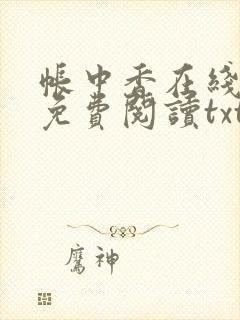 帳中香在綫
免費閱讀txt
鷹神